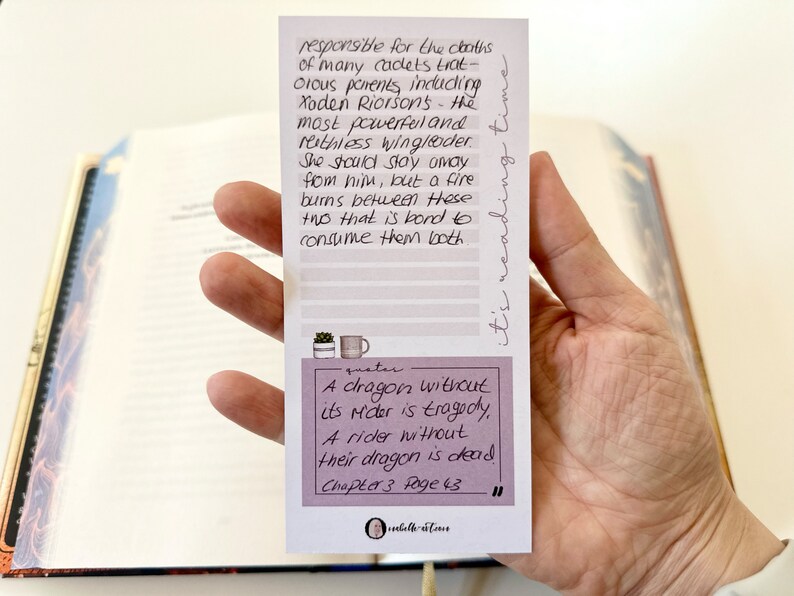 responsible for the deaths
of many cadets trait-
orous parents, including
Xaden Riorson's - the
most powerful and
ruthless wingleader.
She should stay away
from him, but a fire
burns between these
two that is bond to
consume them both.
it's reading time
quotes
A dragon without
its rider is tragedy.
A rider without
their dragon is dead.
Chapter 3 Page 43
"
nabelle-art.com